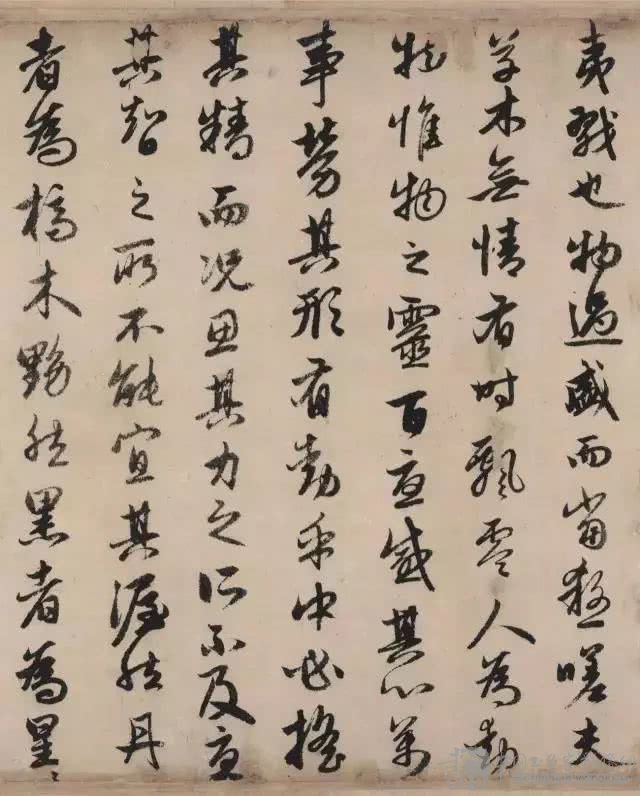 夷戮也物過盛而當殺嗟夫
草木無情有時飄零人為動
物惟物之靈百憂感其心萬
事勞其形有動乎中必搖
其精而況思其力之所不及憂
其智之所不能宜其渥然丹
者為槁木黟然黑者為星〻